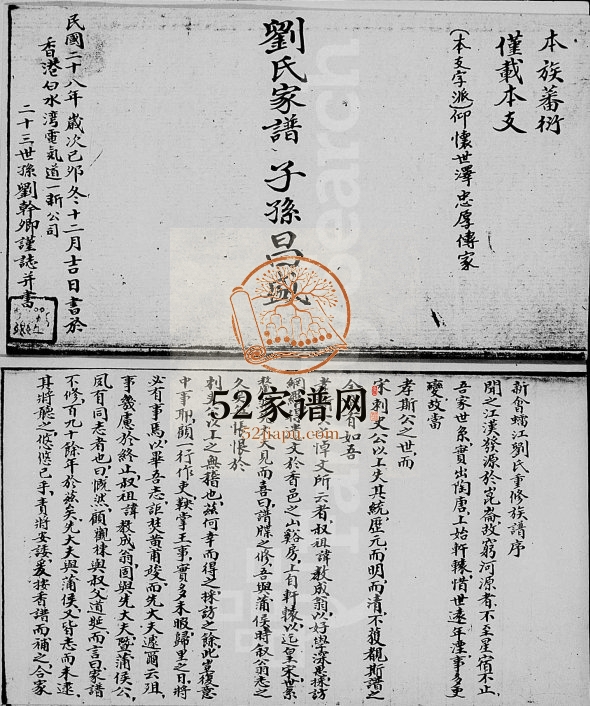 本族蕃衍
僅載本支
(本支字派)仰懷世澤忠厚傳家
劉氏家譜 子孫昌盛
民國二十八年歲次己卯冬十二月吉日書於
香港白水湾電氣道一新公司
二十三世孫劉幹卿謹誌并書
新會蠕江劉氏重修族譜序
聞之江漢發源於崑崙故窮河源者不至星宿不止
吾家世系實出陶唐上始軒轅惜世遠年湮事多更
變故當
孝斯公之世而
宋刺史公以上失其統歷元而明而清不獲覩斯譜之
文所云者叔祖諱敦成翁以好學深思採訪
遺文於香邑之山谿房上自軒轅以迄皇宋世系
見而喜曰譜牒之修吾與蒲侯時叙翁志之
久
以上之無稽也兹何幸而得之採訪之餘此宜復意
中事耶顧一行作吏鞅掌王事實多未暇歸里之日將
必有事焉以畢吾志詎焚黄甫竣而先大夫遽爾云殂
事幾處於終止叔祖諱敦成翁固與先大夫暨蒲侯公
夙有同志者也曰慨然顧觀棟與叔父道延而言曰家譜
不修百九十餘年於兹矣先大夫與蒲侯又皆志而未逮
其將聽之悠悠已乎責將安諉爰按香譜而補之合家
52家谱网
52jiapu.com